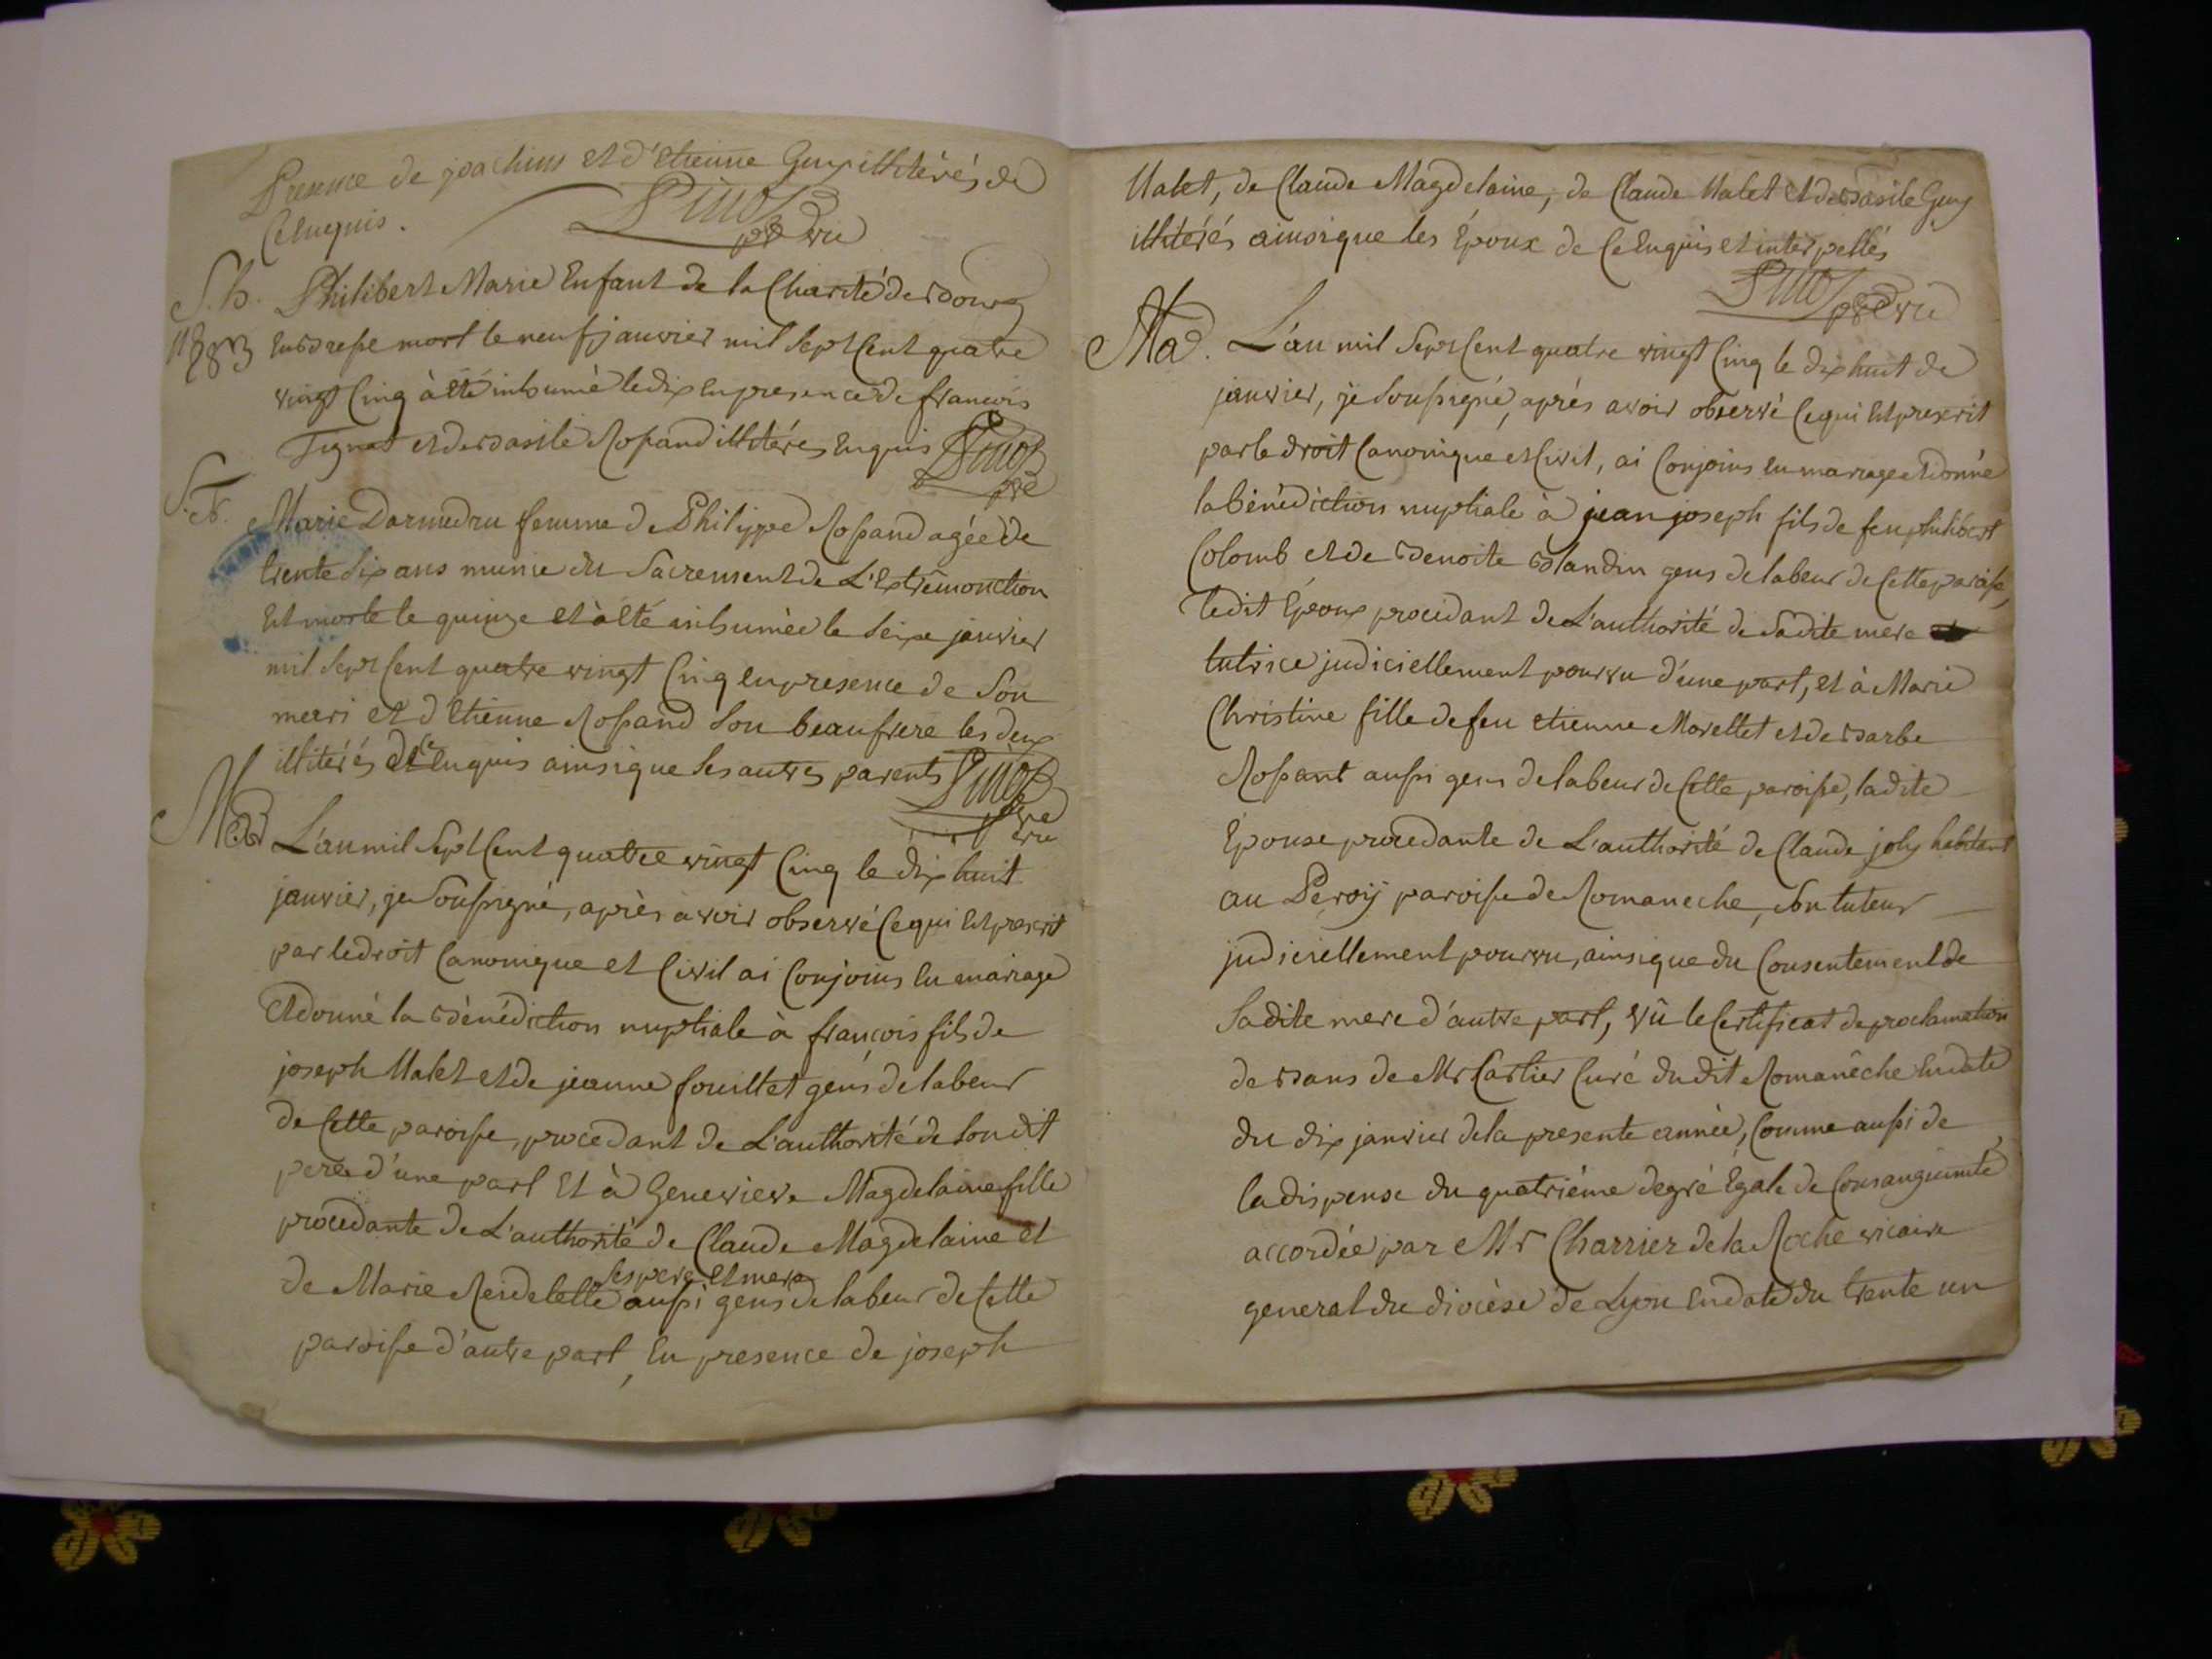 Presence de joachim et d'etienne Guy illitérés de
Ce enquis.
Pinot
ptre vic
S.h. Philibert Marie Enfant de la Charité de Bourg
En Bresse mort le neuf janvier mil Sept Cent quatre
vingt Cinq à Eté inhumé le dix en presence de francois
Tignat et de Basile Rossand illitérés Enquis Pinot
ptre
S.f. Marie Darmedru femme de Philippe Rossand agée de
trente Six ans munie du Sacrement de L'Extrêmonction
Est morte le quinze et à Eté inhumée le Seize janvier
mil Sept Cent quatre vingt Cinq en presence de Son
mari et d'Etienne Rossand Son beaufrere les deux
illitérés de ce Enquis ainsi que Ses autres parents Pinot
ptre
vic
L'an mil Sept Cent quatre vingt Cinq le dix huit
janvier, je Soussigné, après avoir observé Ce qui Est prescrit
par le droit Canonique et Civil ai Conjoins En mariage
Et donné la Bénédiction nuptiale à françois fils de
joseph Malet et de jeanne fouillet gens de labeur
de Cette paroisse, procedant de L'authorité de Son dit
pere d'une part Et à Genevieve Magdelaine fille
procedante de L'authorité de Claude Magdelaine et
de Marie Reidelette Ses pere Et mere aussi gens de labeur de Cette
paroisse d'autre part, En presence de joseph
Malet, de Claude Magdelaine, de Claude Malet et de Basile Guy
illitérés ainsi que les Époux de Ce Enquis et interpellés
Pinot ptre vic
Ma. L'an mil Sept Cent quatre vingt Cinq le dix huit de
janvier, je Soussigné, après avoir observé Ce qui Est prescrit
par le droit Canonique et Civil, ai Conjoins En mariage et donné
la bénédiction nuptiale à jean joseph fils de feu philibert
Colomb et de Benoite Blandin gens de labeur de Cette paroisse,
ledit Époux procedant de L'authorité de Sa dite mere
tutrice judiciellement pourvu d'une part, et à Marie
Christine fille de feu etienne Morellet et de Barbe
Rossant aussi gens de labeur de Cette paroisse, la dite
Épouse procedante de L'authorité de Claude joly habitant
au Peroij paroisse de Romaneche, Son tuteur
judiciellement pourvu, ainsi que du Consentement de
Sa dite mere d'autre part, vû le Certificat de proclamation
de Bans de Mr Cartier Curé du dit Romanêche En date
du dix janvier de la presente année, Comme aussi de
la dispense du quatriéme degré Egale de Consanguinité
accordée par Mr Charrier de la Roche vicaire
general du diocèse de Lyon En date du trente un